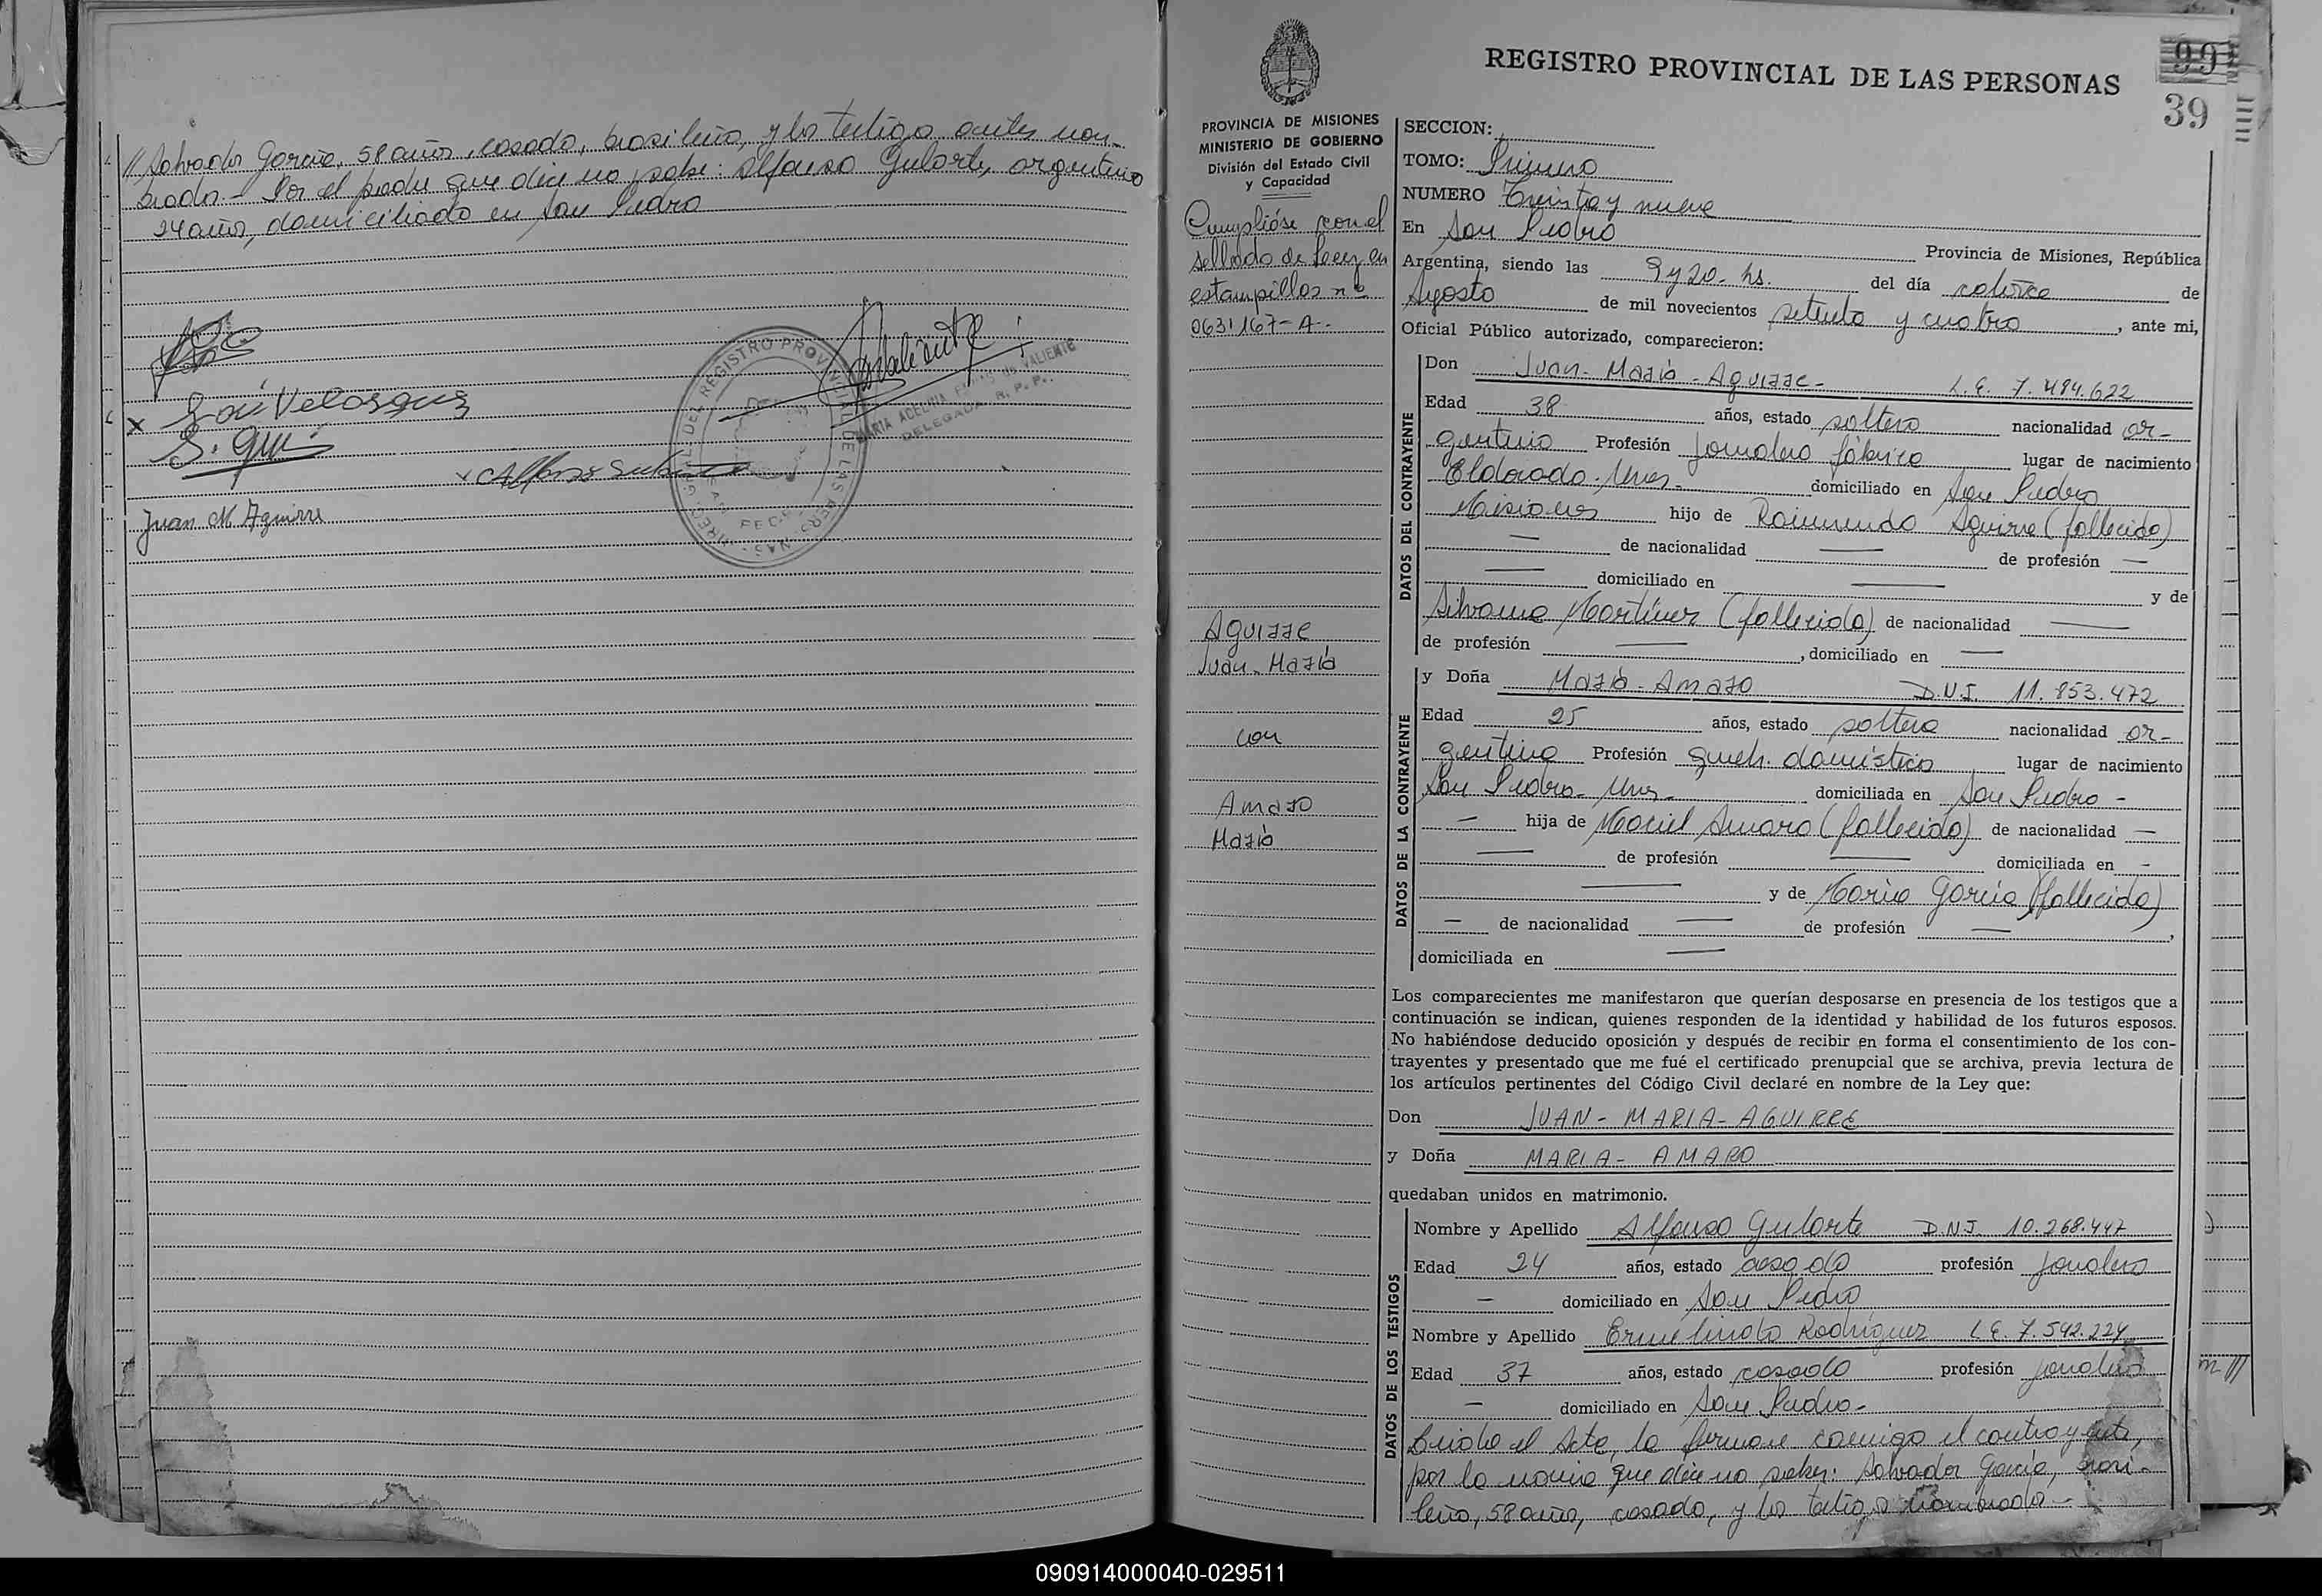 // Salvador García, 58 años, casado, brasileño, y los testigos antes nom-
brados.- Por el padre que dice no saber: Alfonso Gularte, argentino
24 años, domiciliado en San Pedro
x José Velasquez
x Alfonso Gularte
Juan M Aguirre
DIREC. GRAL. DEL REGISTRO PROVINCIAL DE LAS PERSONAS
MARIA ADELINA DE VALIENTE
DELEGADA R.P.P.
REGISTRO PROVINCIAL DE LAS PERSONAS
99
39
PROVINCIA DE MISIONES
MINISTERIO DE GOBIERNO
División del Estado Civil
y Capacidad
Cumplióse con el
sellado de Ley en
estampillas nº
0631167-A-
Aguirre
Juan-María
con
Amaro
María
SECCION:
TOMO: Primero
NUMERO Treinta y nueve
En San Pedro Provincia de Misiones, República
Argentina, siendo las 9 y 20- hs. del día catorce de
Agosto de mil novecientos setenta y cuatro, ante mi,
Oficial Público autorizado, comparecieron:
DATOS DEL CONTRAYENTE
Don Juan-María-Aguirre- L.E. 7.484.622
Edad 38 años, estado soltero nacionalidad ar-
gentino Profesión Jornalero fábrica lugar de nacimiento
Eldorado-Mnes- domiciliado en San Pedro
Misiones hijo de Raimundo Aguirre (fallecido)
— de nacionalidad — de profesión —
— domiciliado en — y de
Silvana Martinez (fallecida) de nacionalidad —
de profesión — , domiciliado en —
DATOS DE LA CONTRAYENTE
y Doña María-Amaro D.N.I. 11.853.472
Edad 25 años, estado soltera nacionalidad ar-
gentina Profesión Queh. doméstico lugar de nacimiento
San Pedro-Mnes- domiciliada en San Pedro -
— hija de Maciel Amaro (fallecido) de nacionalidad —
— de profesión — domiciliada en -
— y de María García (fallecida)
— de nacionalidad — de profesión — ,
domiciliada en —
Los comparecientes me manifestaron que querían desposarse en presencia de los testigos que a
continuación se indican, quienes responden de la identidad y habilidad de los futuros esposos.
No habiéndose deducido oposición y después de recibir en forma el consentimiento de los con-
trayentes y presentado que me fué el certificado prenupcial que se archiva, previa lectura de
los artículos pertinentes del Código Civil declaré en nombre de la Ley que:
Don JUAN-MARIA-AGUIRRE
y Doña MARIA- AMARO
quedaban unidos en matrimonio.
DATOS DE LOS TESTIGOS
Nombre y Apellido Alfonso Gularte D.N.I. 10.268.447
Edad 24 años, estado casado profesión Jornalero
— domiciliado en San Pedro
Nombre y Apellido Ermelindo Rodriguez L.E. 7.542.224
Edad 37 años, estado casado profesión jornalero
— domiciliado en San Pedro-
Leída el Acta, la firman conmigo el contrayente,
por la novia que dice no saber: Salvador García, brasi-
leño, 58 años, casado, y los testigos nombrados-
090914000040-029511